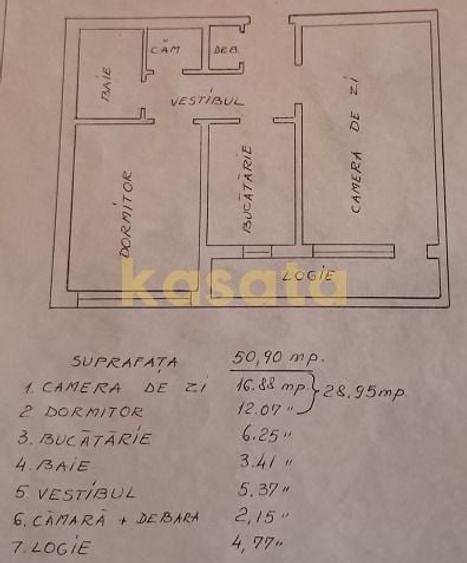 CĂM
DEB.
BAIE
VESTIBUL
DORMITOR
BUCĂTĂRIE
CAMERA DE ZI
LOGIE
kasata
SUPRAFAȚA 50,90 mp.
1. CAMERA DE ZI 16.88 mp. 28,95 mp.
2 DORMITOR 12.07 "
3. BUCĂTĂRIE 6.25 "
4. BAIE 3.41 "
5 VESTIBUL 5.37 "
6. CĂMARĂ + DEBARA 2,15 "
7. LOGIE 4,77 "